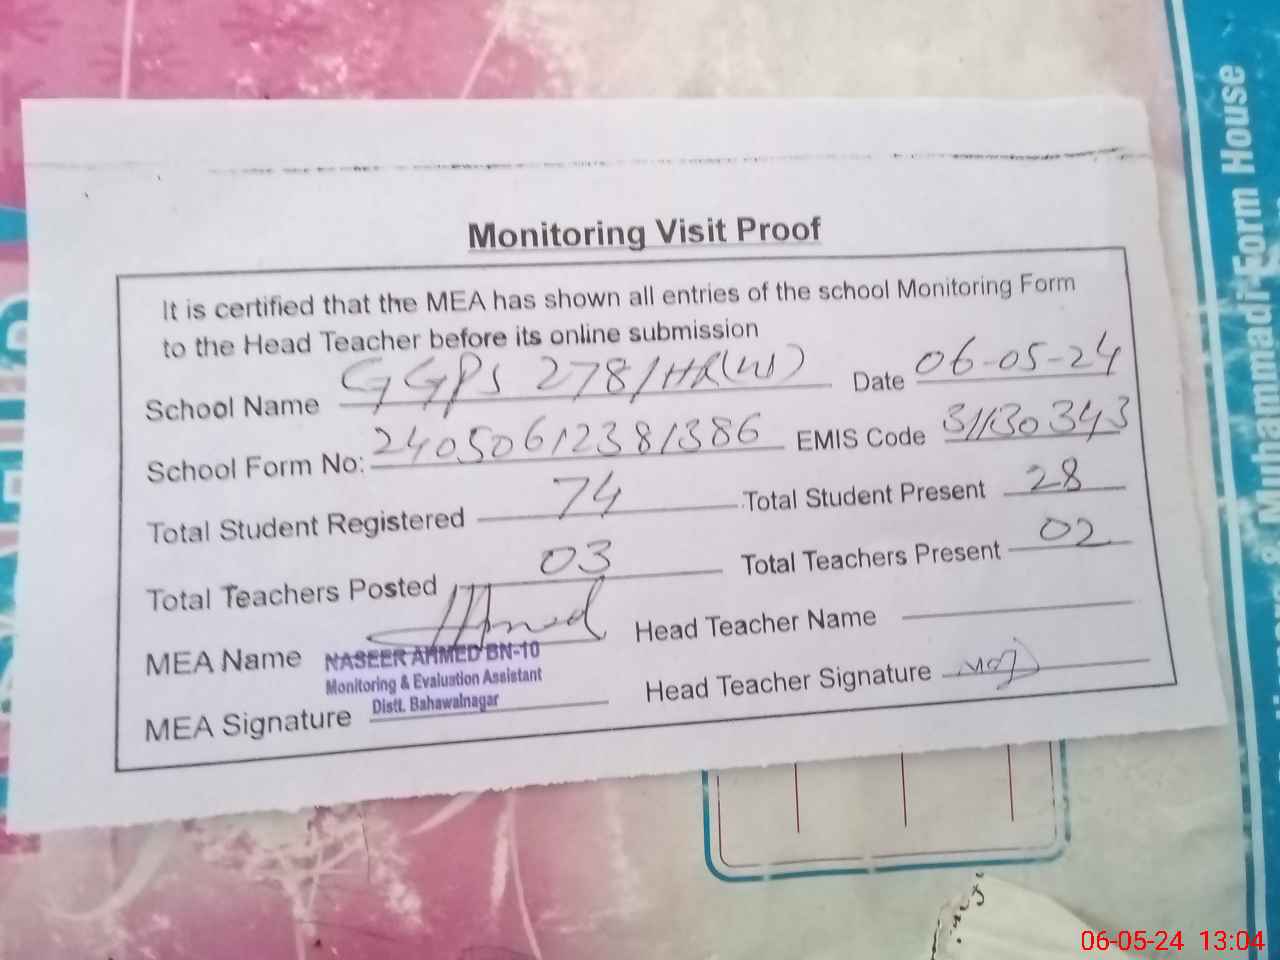 Monitoring Visit Proof
It is certified that the MEA has shown all entries of the school Monitoring Form
to the Head Teacher before its online submission
School Name GGPS 278/HR(W) Date 06-05-24
School Form No: 24050612381386 EMIS Code 31130343
Total Student Registered 74 Total Student Present 28
Total Teachers Posted 03 Total Teachers Present 02
MEA Name Head Teacher Name
NASEER AHMED BN-10
Monitoring & Evaluation Assistant
Distt. Bahawalnagar
MEA Signature Head Teacher Signature
Muhammadi Form House
06-05-24 13:04